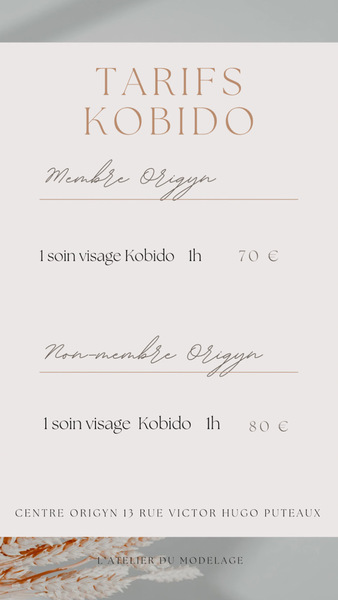 TARIFS
KOBIDO
Membre Origyn
1 soin visage Kobido 1h 70 €
Non-membre Origyn
1 soin visage Kobido 1h 80 €
CENTRE ORIGYN 13 RUE VICTOR HUGO PUTEAUX
L'ATELIER DU MODELAGE